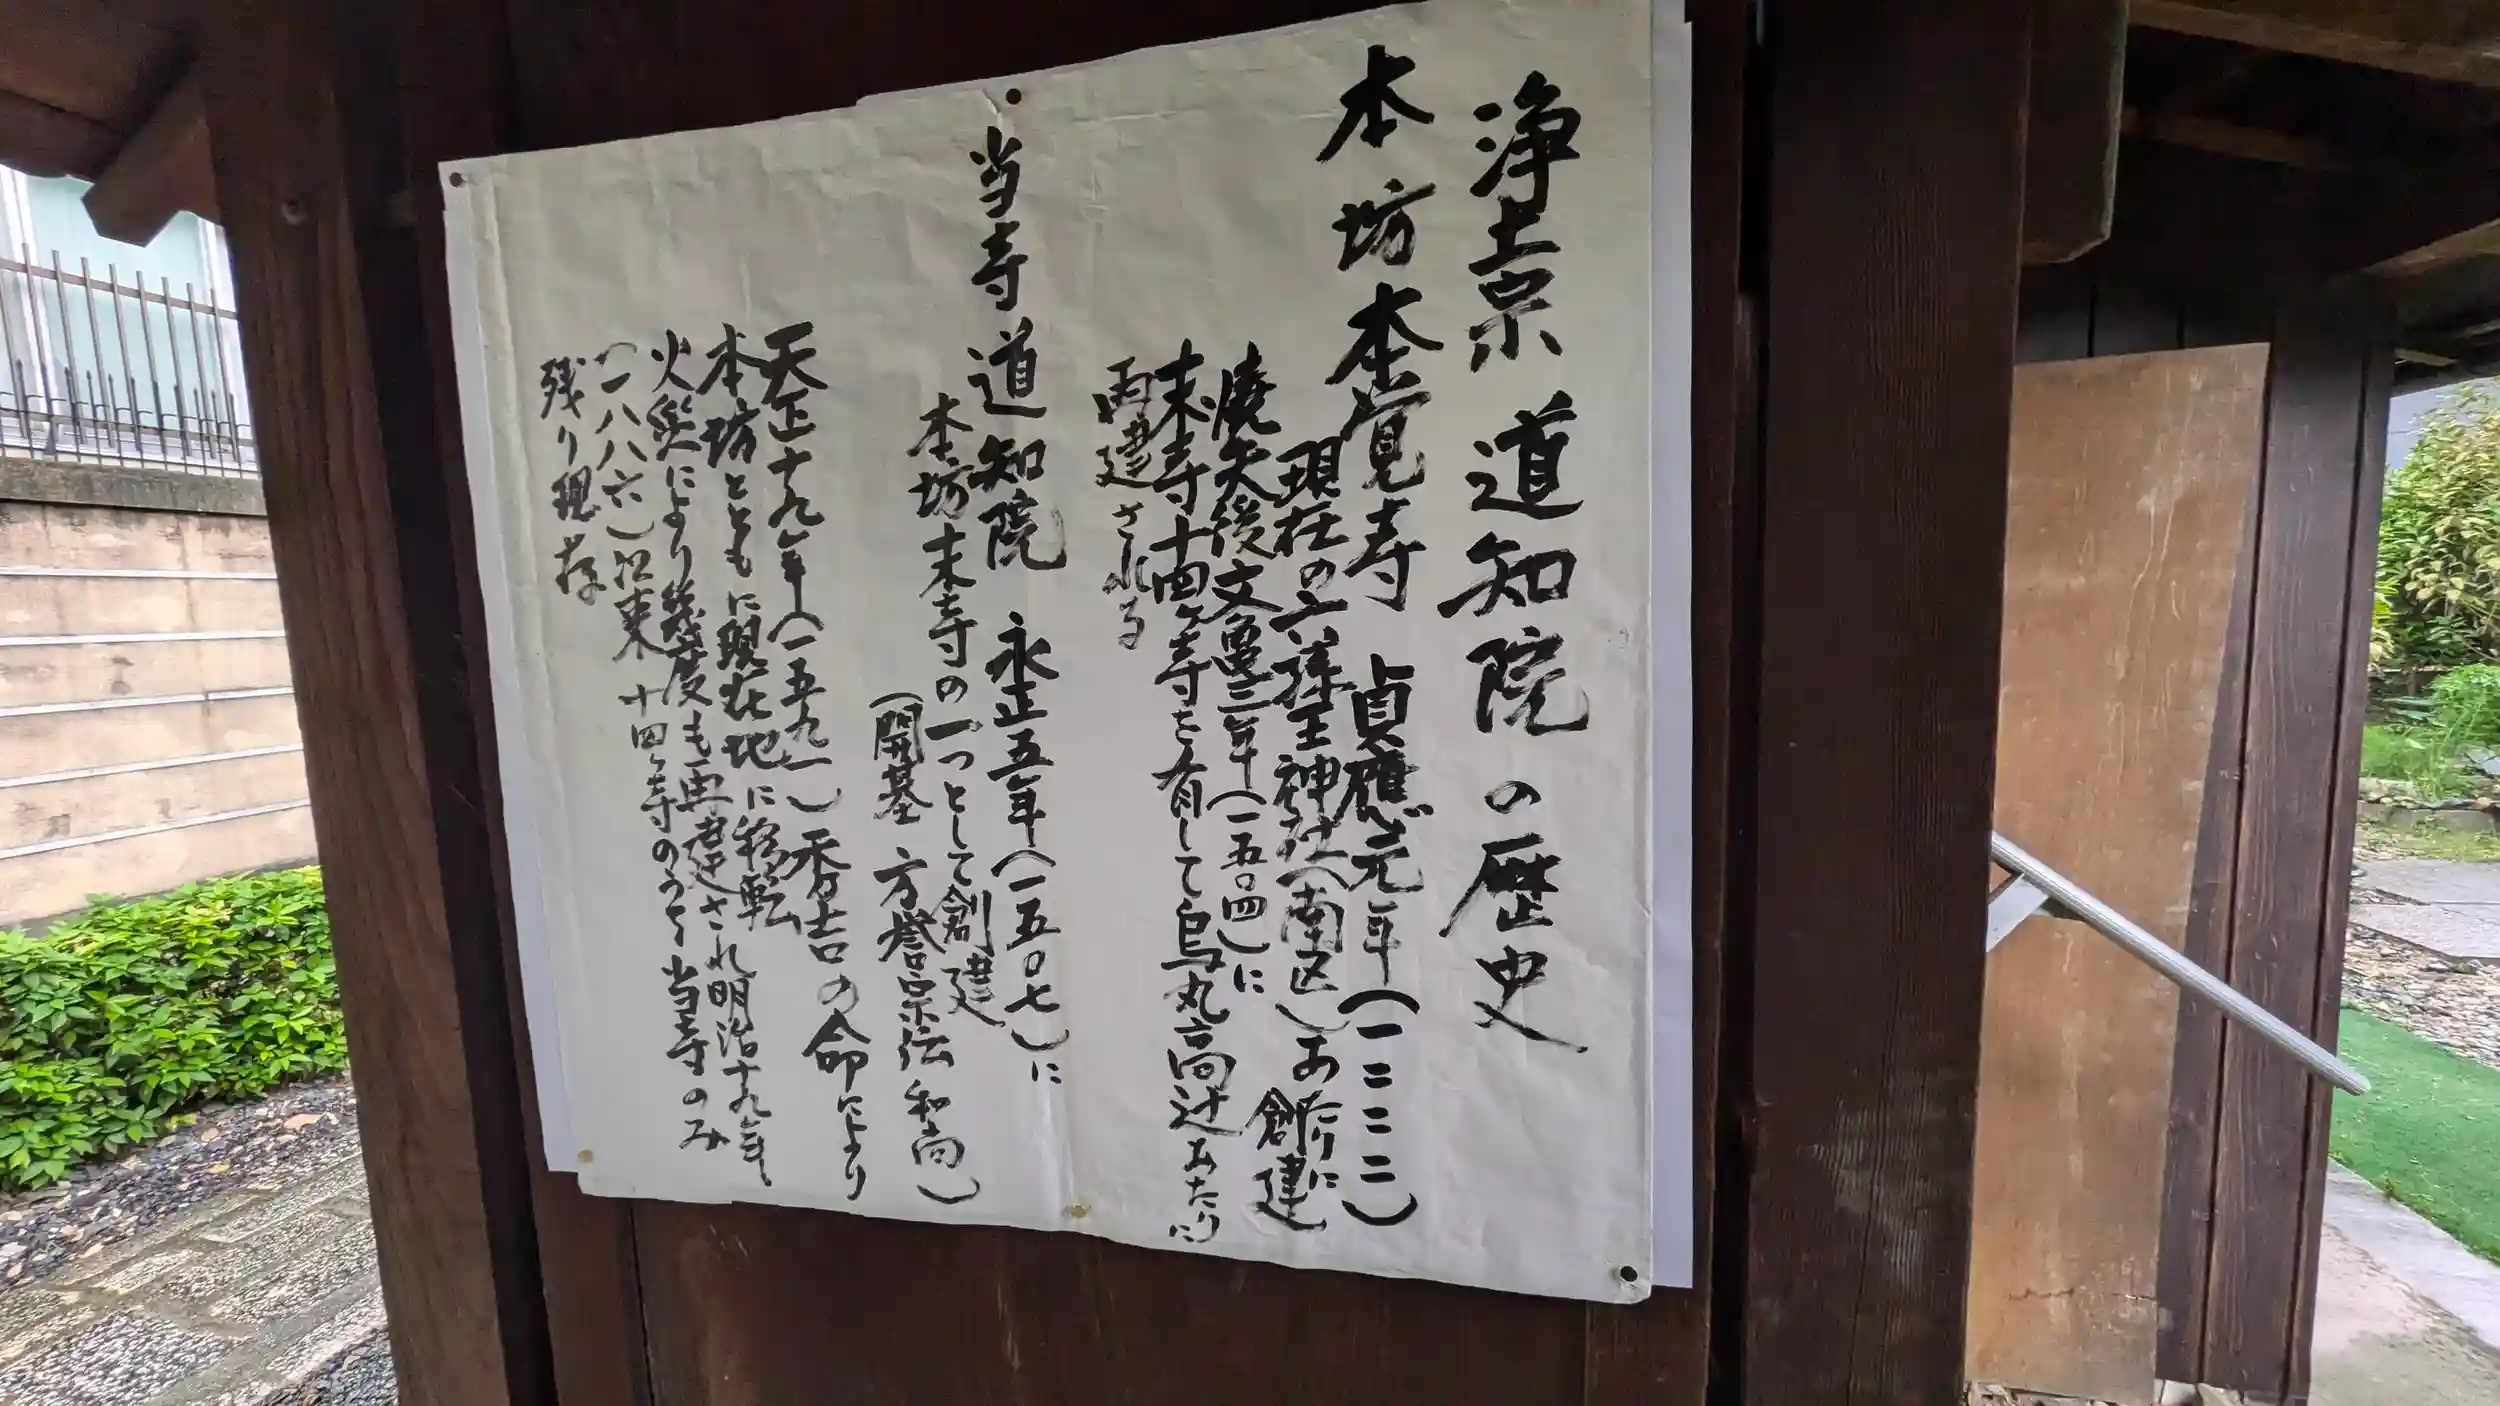 浄土宗 道知院の歴史
本坊 本覚寺 貞應元年(一二二二)
現在の六孫王神社(南区)あたりに創建
焼失後文亀三年(一五〇四)に
末寺十四ヶ寺を有して烏丸高辻あたりに
再建される
当寺 道知院 永正五年(一五〇七)に
本坊末寺の一つとして創建
(開基 方誉宗伝和尚)
天正十九年(一五九一)秀吉の命により
本坊とともに現在地に移転
火災により幾度も再建され明治十九年
(一八八六)以来 十四ヶ寺のうち当寺のみ
残り現存